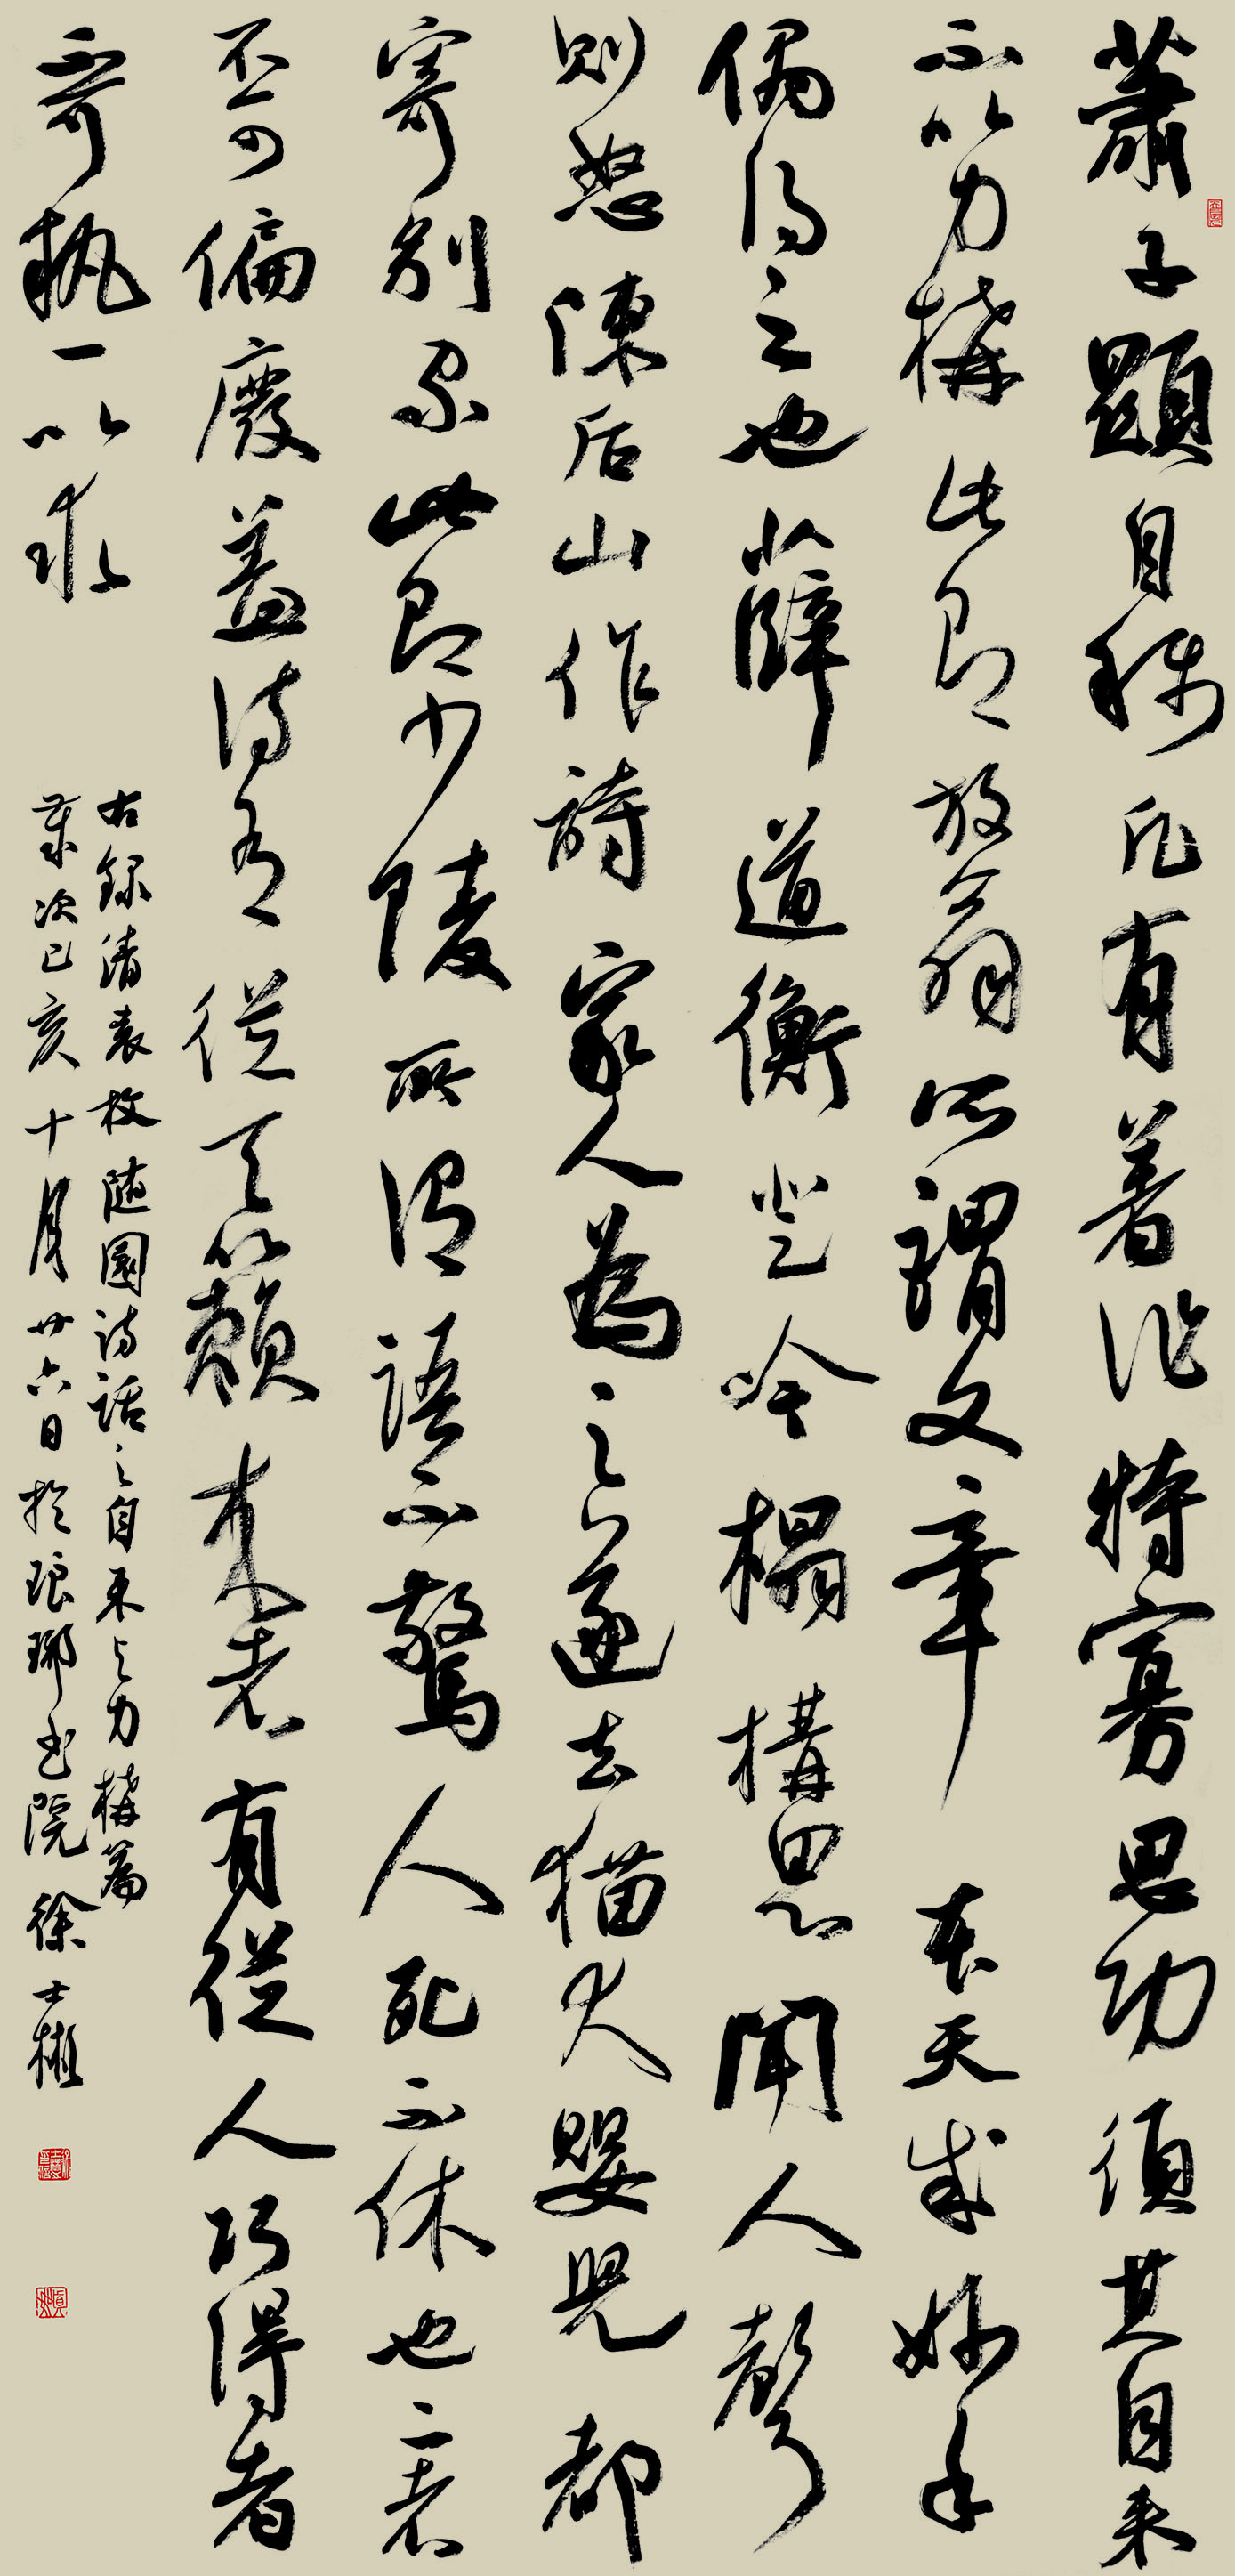 蕭子顯自稱凡有著作特寡思功須其自来
不以力構此即放翁所謂文章本天成妙手
偶得之也薛道衡登吟榻構思聞人聲
則怒陳后山作詩家人為之逐去猫犬嬰兒都
寄别家此即少陵所謂語不驚人死不休也二者
不可偏廢盖詩有從天籟来者有從人巧得者
不可執一以求
右録清袁枚随園詩話之自来與力構篇
歲次己亥十月廿六日於琅琊书院徐士彬